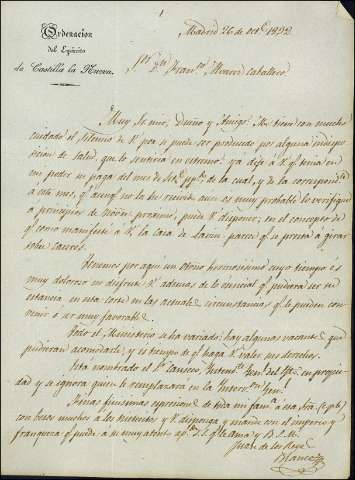 Ordenacion
del Egército
de Castilla la Nueva.
Madrid 26 de oct.e 1832
Fran.co Alvarez Caballero
Muy Sr. mio, Dueño y Amigo: Me tiene con mucho
cuidado el silencio de V. por si puede ser producido por alguna indispo-
sicion de salud, que lo sentiria en estremo: ya dije á V. q.e tenia en
mi poder su paga del mes de de la cual, y de la correspond.te
á este mes, q.e aunq.e no la he recivido aun es muy probable lo verifique
á principios de Nov.e proximo, puede V. disponer; en el concepto de
q.e como manifesté á V. la casa de parece q.e se presta á girar
sobre Caceres.
Tenemos por aqui un otoño hermosisimo cuyo tiempo es
muy doloroso no disfrute V. ademas de lo esencial q.e pudiera ser su
estancia en esta corte en las actuales circunstancias q.e le pueden con-
venir o ser muy favorable.
Todo el Ministerio se ha variado: hay algunas vacantes que
pudieran acomodarle, y es tiempo de q.e haga V. valer sus derechos.
Está nombrado el S.r Intend.te Gen.l del Eg.to en propie-
dad y se ignora quien le remplazara en la Gen.l
finas espresiones de toda mi fam.a á esa Sra.
con besos muchos á los nietecitos y V. disponga y mande con el imperio y
franqueza q.e puede á su muy atento q.e le ama y B. S. M.
Juan de los Reyes